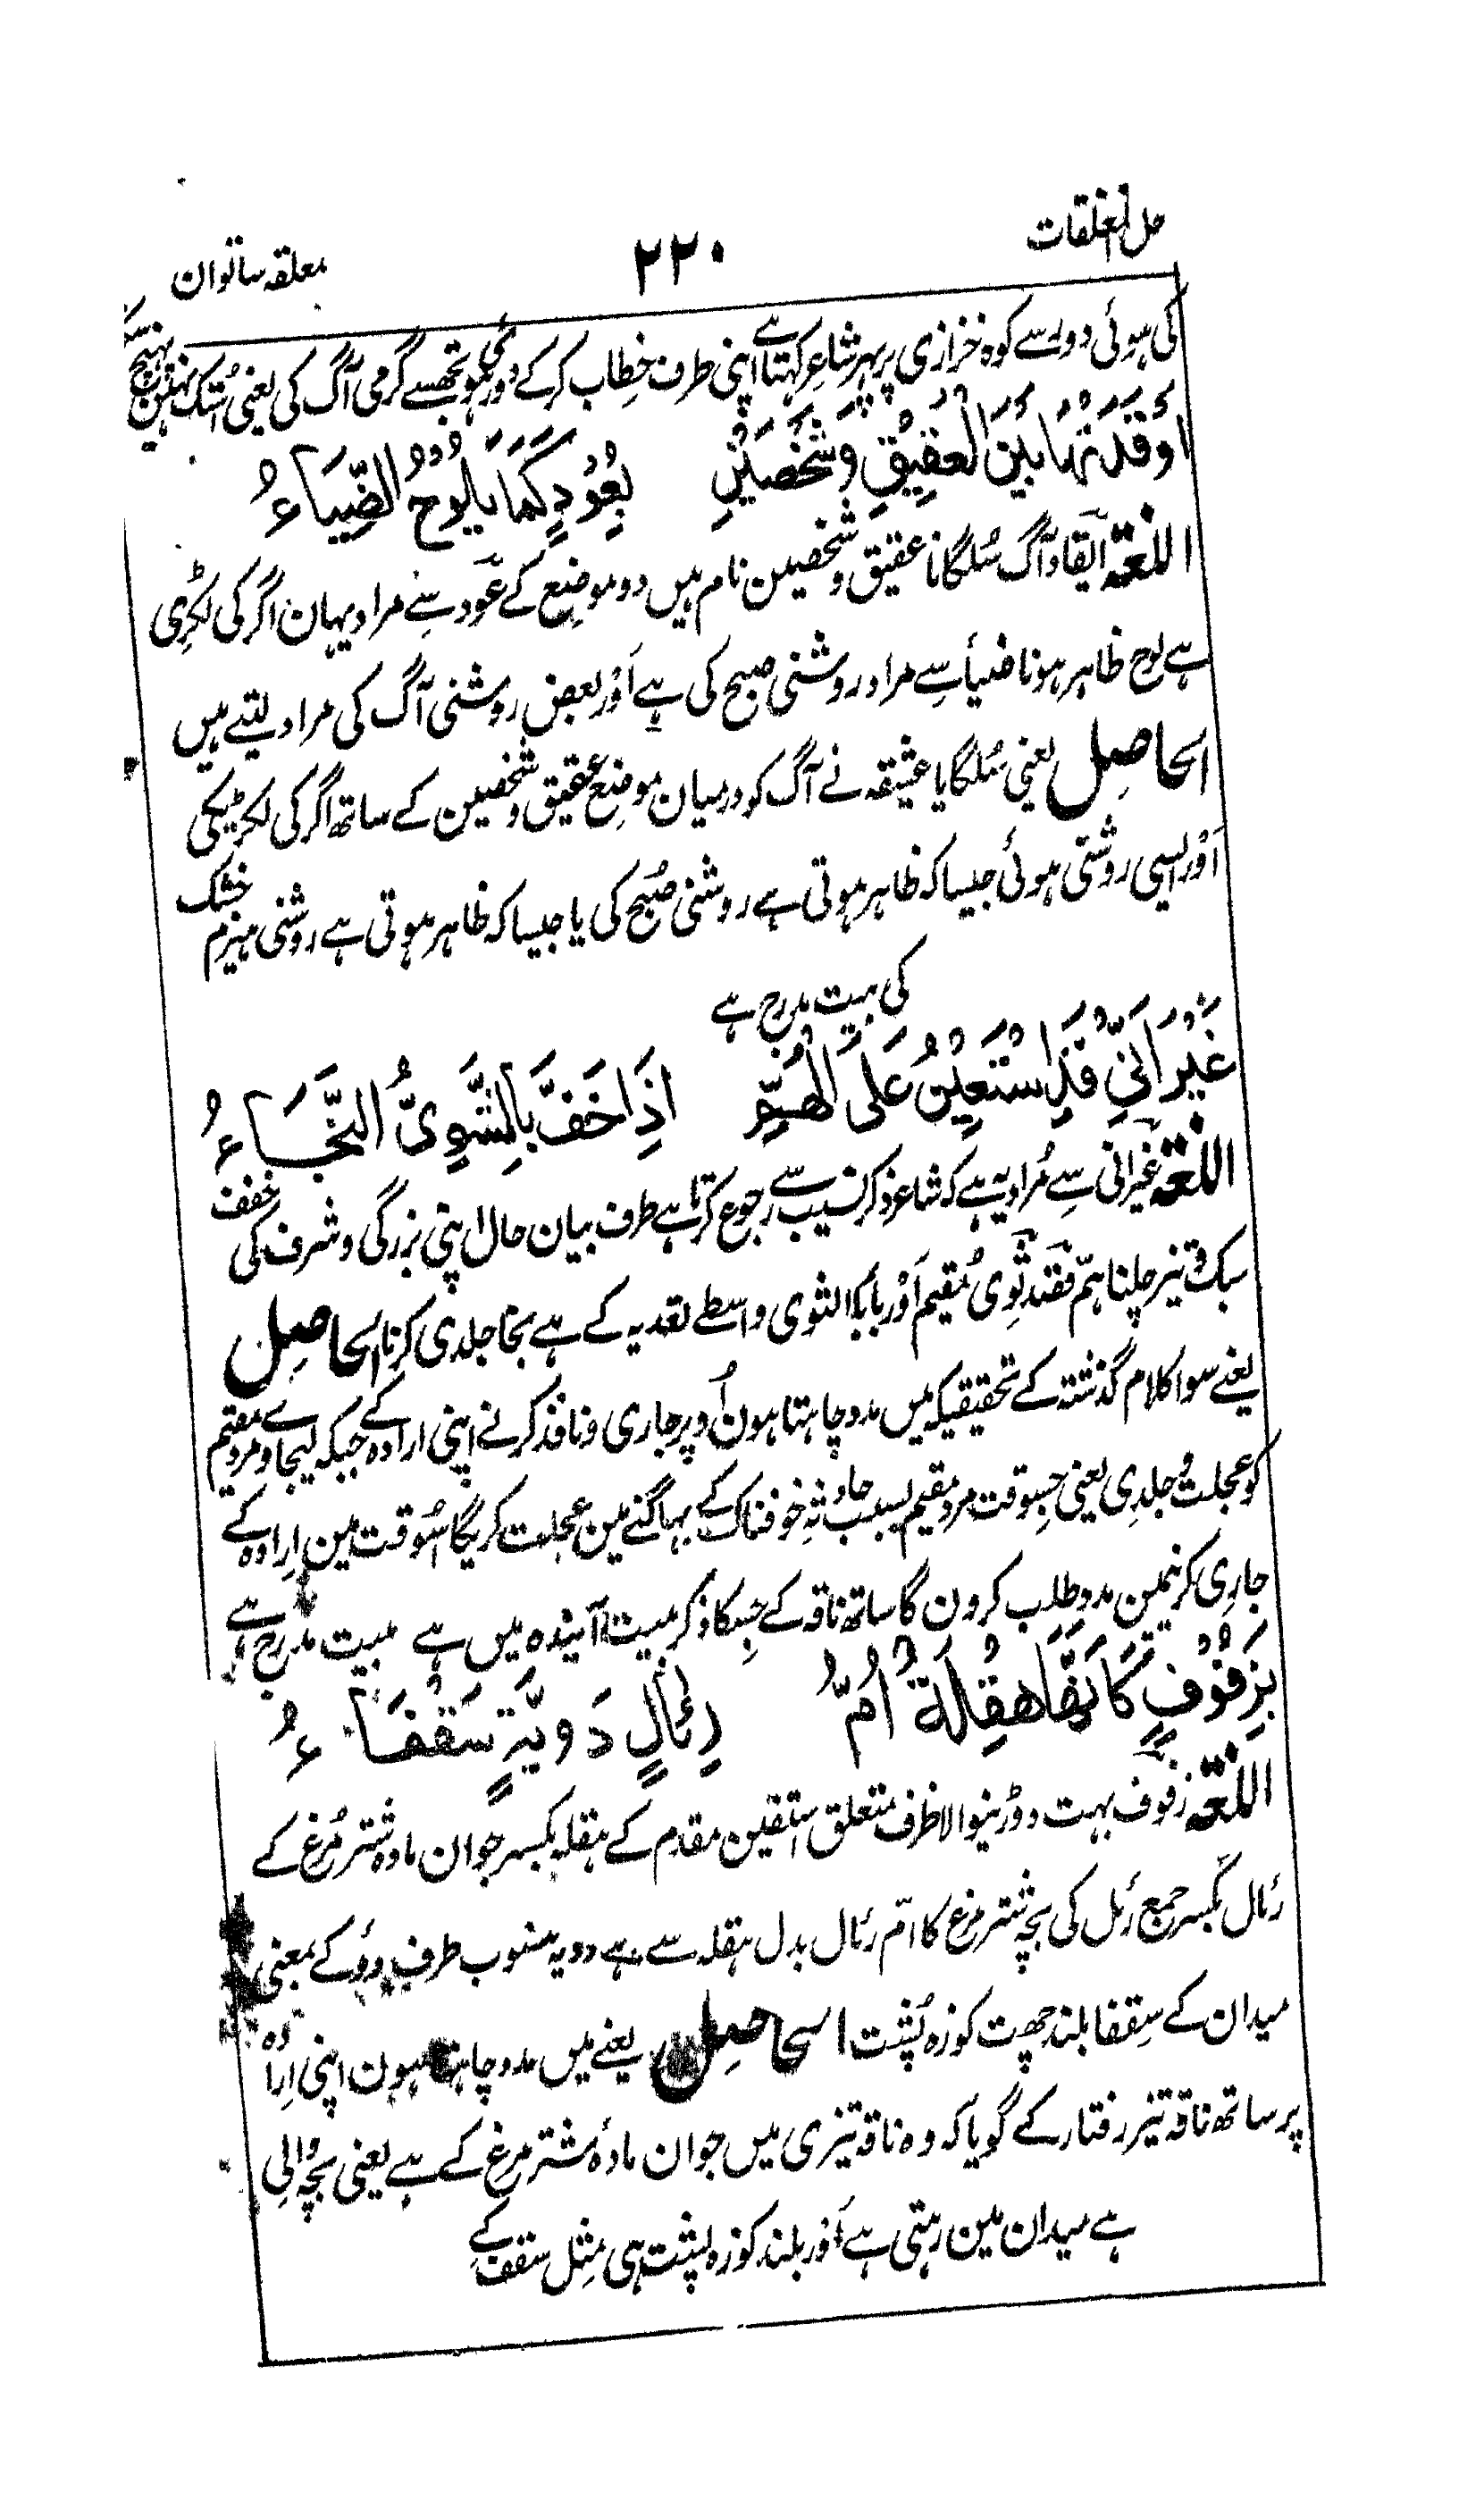 حل المعلقات ۲۲۰ معلقہ ساتوان
کی ہوئی دور سے کوہ خزازی پر پہر شاعر کہتا ہے اپنی طرف خطاب کر کے دور ہوئی تجھسے گرمی آگ کی یعنی اُس تک نہین پہنچ
أَوْقَدَتْهَا بَيْنَ الْعَقِيْقِ وَشَخْصَيْنِ بِعُوْدٍ كَمَا يَلُوْحُ الضِّيَاءُ
اللغة ایقاد آگ سُلگانا عقیق و شخصین نام ہیں دو موضع کے عود سے مراد یہان اگر کی لکڑی
ہے لوح ظاہر ہونا ضیأ سے مراد روشنی صبح کی ہے اَور بعض روشنی آگ کی مراد لیتے ہیں
الحاصِل یعنی سُلگایا عشیقہ نے آگ کو درمیان موضع عقیق و شخصین کے ساتھ اگر کی لکڑیکی
اَور ایسی روشنی ہوئی جیسا کہ ظاہر ہوتی ہے روشنی صُبح کی یا جیسا کہ ظاہر ہوتی ہے روشنی ہیزم خشک
کی بیت مدرج ہے
غَيْرَ اَنِّيْ قَدْ اَسْتَعِيْنُ عَلَى الْهَمِّ اِذَا خَفَّ بِالثَّوِيِّ النَّجَاءُ
اللغة غیر انی سے مُراد یہ ہے کہ شاعر ذکر نسیب سے رجوع کرتا ہے طرف بیان حال اپنی بزرگی و شرف کی خفف
سبک و تیز چلنا ہمّ قصد ثوی مُقیم اَور با بالثوی واسطے تعدیہ کے ہے نجا جلدی کرنا الحاصِل
یعنے سوا کلام گذشتہ کے تحقیقیکہ میں مدد چاہتا ہون اُوپر جاری و نافذ کرنے اپنی ارادہ کے جبکہ لیجاوے مرد مقیم
کو عجلت و جلدی یعنی جسوقت مرد مقیم بسبب حادثہ خوفناک کے بہاگنے مین عجلت کریگا اُسوقت مین ارادہ کے
جاری کرنیمین مدد طلب کرون گا ساتھ ناقہ کے جسکا ذکر بیت آیندہ میں ہے بیت مدرج ہے
بِزَفُوْفٍ كَاَنَّهَا هِقْلَةٌ اُمُّ رِئَالٍ دَوِيَّةٍ سَقْفَاءُ
اللغة زفوف بہت دوڑنیوالا ظرف متعلق استعین مقدم کے ہقلہ بکسر جوان مادہ شتر مُرغ کے
رئال بکسر جمع رئل کی بچہ شتر مرغ کا امّ رئال بدل ہقلہ سے ہے دویہ منسوب طرف دوّ کے بمعنی
میدان کے سقفا بلند چھت کوزہ پُشت الحاصِل یعنے میں مدد چاہتا ہون اپنی ارادہ
پر ساتھ ناقہ تیز رفتار کے گویا کہ وہ ناقہ تیزی میں جوان مادۂ شتر مرغ کے ہے یعنی بچہ والی
ہے میدان مین رہتی ہے اَور بلند کوزہ پشت ہی مثِل سقف کے